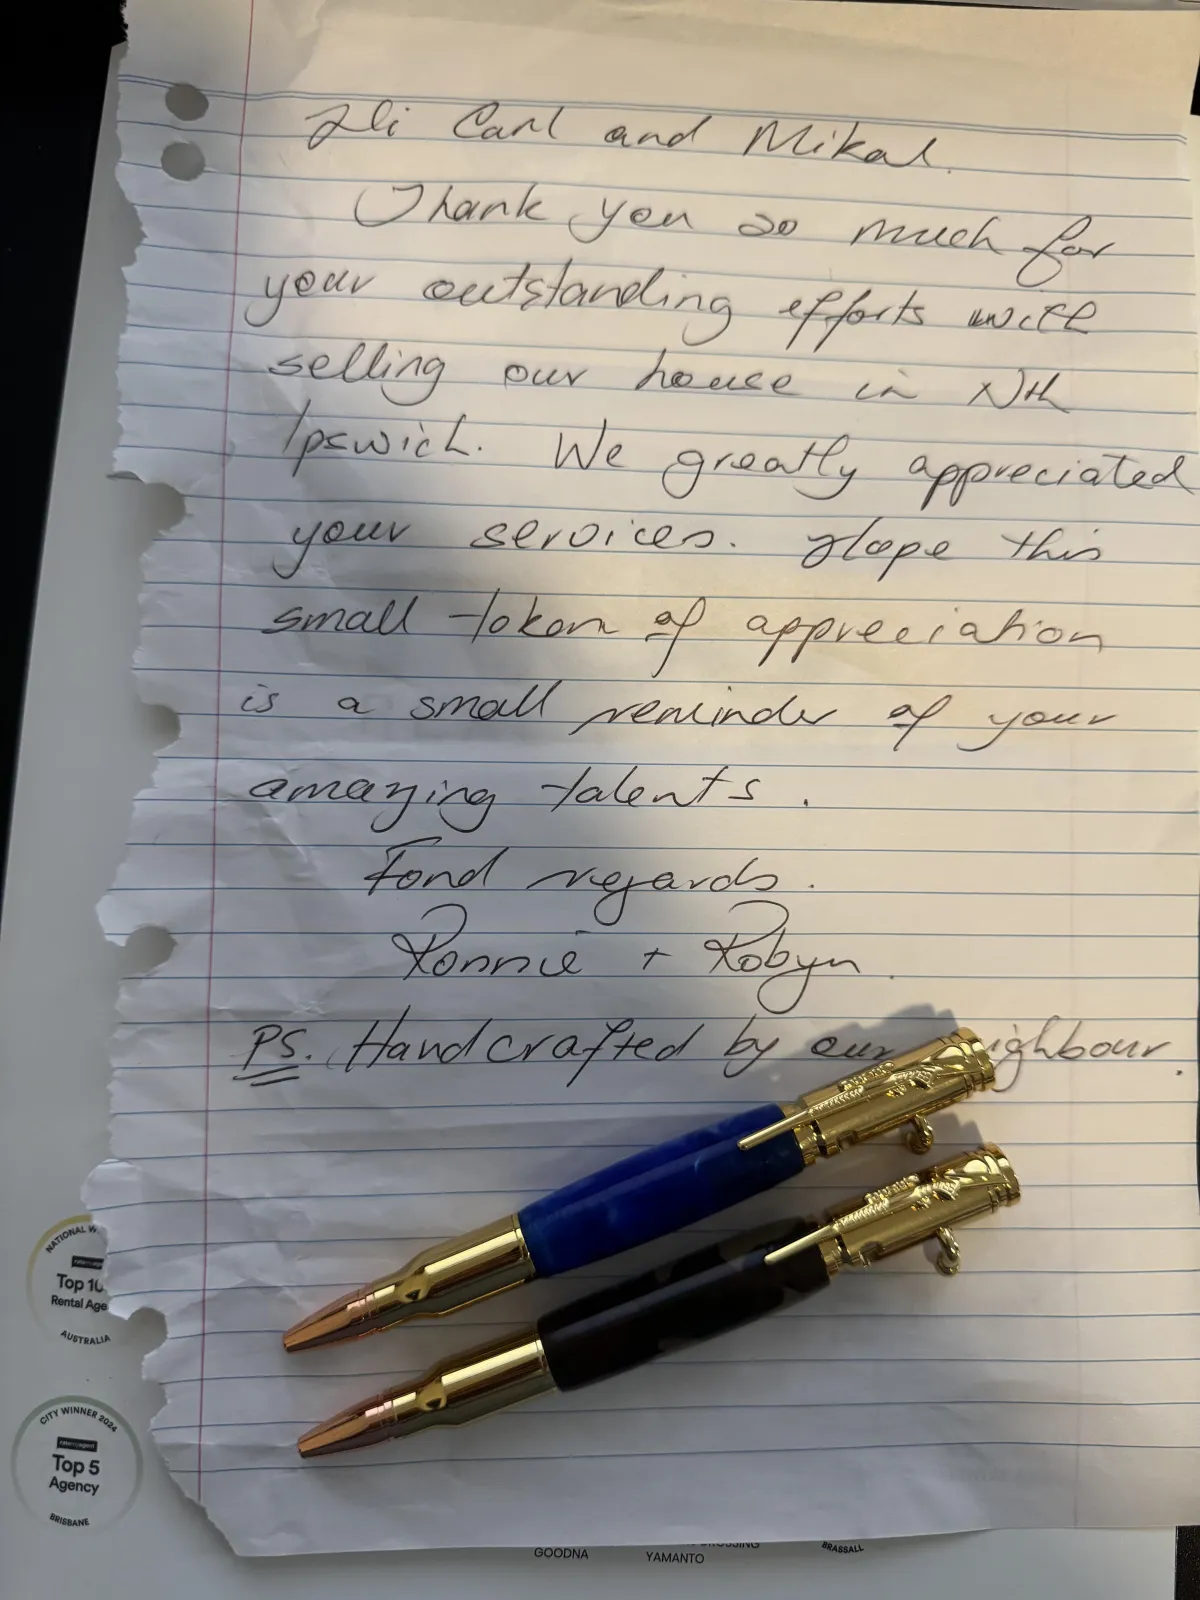 Hi Carl and Mikal.
Thank you so much for
your outstanding efforts with
selling our house in Nth
Ipswich. We greatly appreciated
your services. Hope this
small token of appreciation
is a small reminder of your
amazing talents.
Fond regards.
Ronnie + Robyn.
PS. Handcrafted by our ighbour.
NATIONAL W
Top 10
Rental Age
AUSTRALIA
CITY WINNER 2024
Top 5
Agency
BRISBANE
GOODNA
YAMANTO
BRASSALL